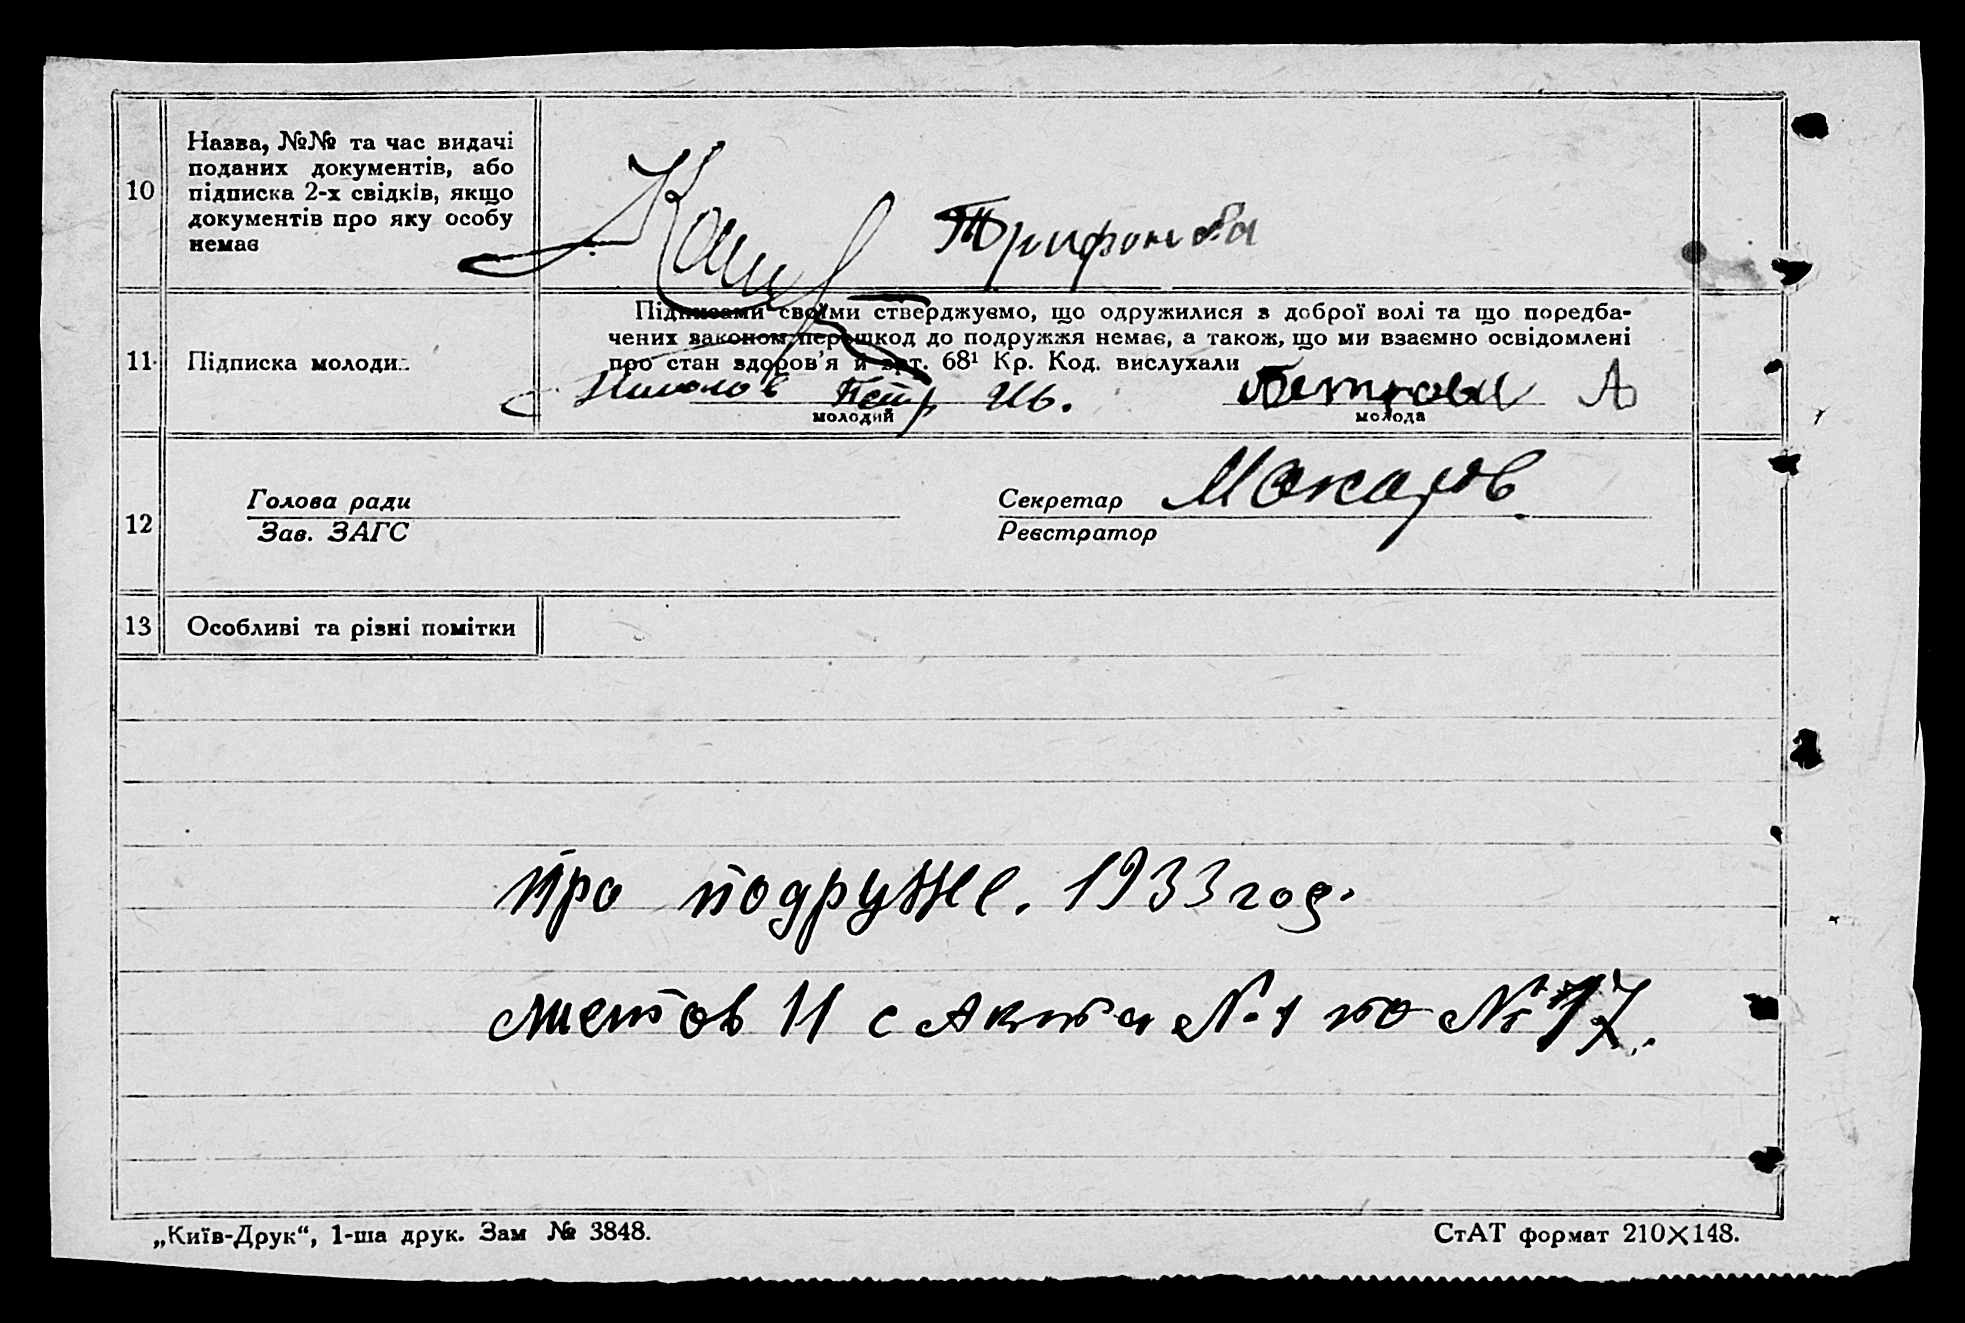 10
Назва, №№ та час видачі
поданих документів, або
підписка 2-х свідків, якщо
документів про яку особу
немає
Трифонова
11
Підписка молоди
Підписами своїми стверджуємо, що одружилися з доброї волі та що поредба-
чених законом перешкод до подружжя немає, а також, що ми взаємно освідомлені
про стан здоров'я й арт. 68¹ Кр. Код. вислухали
Петр Ив.
А
молодий
молода
12
Голова ради
Зав. ЗАГС
Секретар Макаров
Реєстратор
13
Особливі та різні помітки
про подруже. 1933 год.
листов 11 с Акта №1 по № 17.
„Київ-Друк“, 1-ша друк. Зам № 3848.
СтАТ формат 210×148.